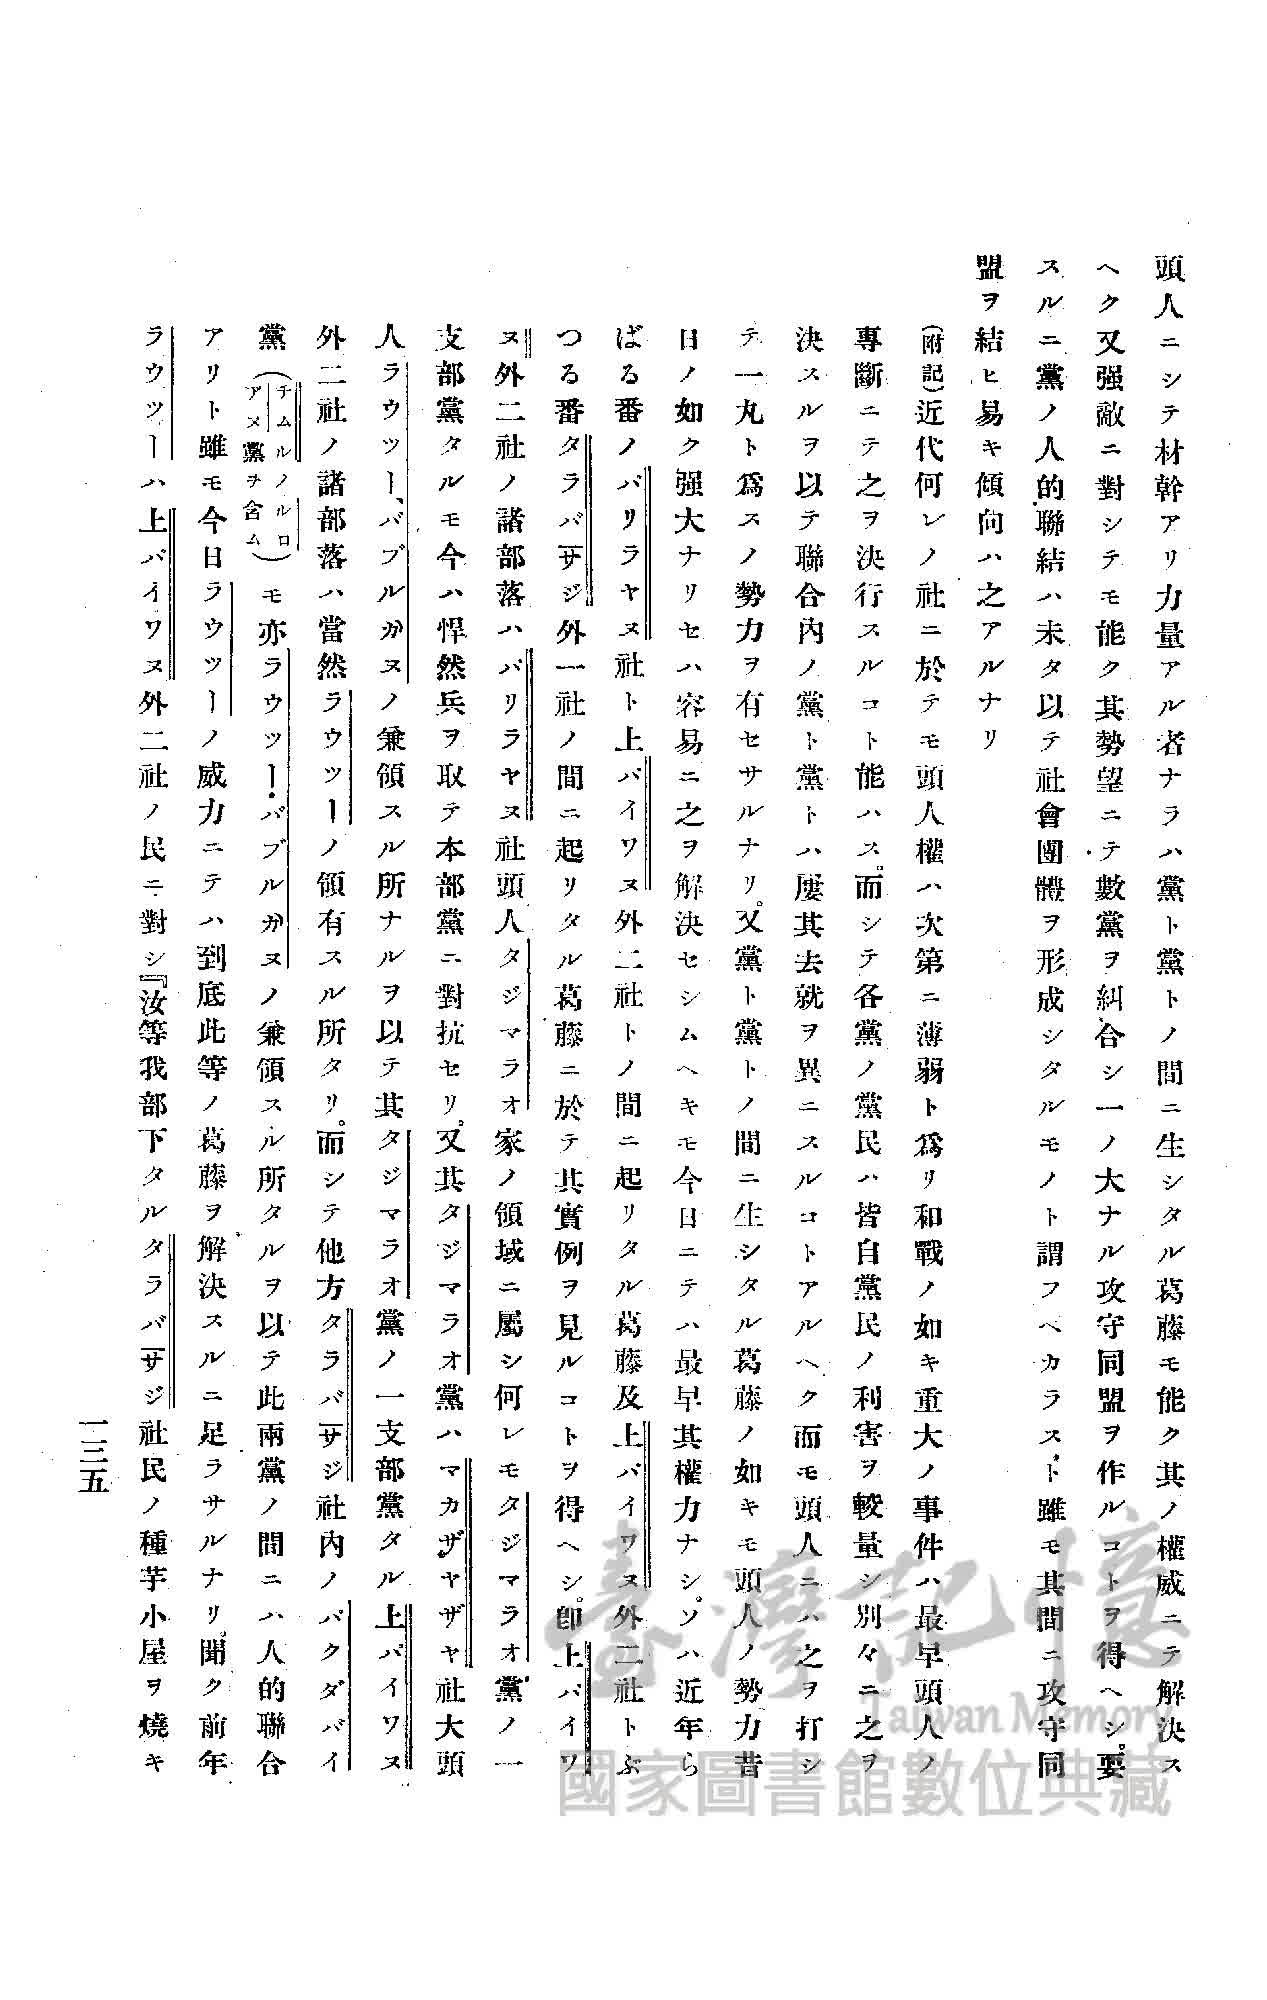 頭人ニシテ材幹アリ力量アル者ナラハ黨ト黨トノ間ニ生シタル葛藤モ能ク其ノ權威ニテ解決ス
ヘク又强敵ニ對シテモ能ク其勢望ニテ數黨ヲ糾合シ一ノ大ナル攻守同盟ヲ作ルコトヲ得ヘシ。要
スルニ黨ノ人的聯結ハ未タ以テ社會團體ヲ形成シタルモノト謂フヘカラスト雖モ其間ニ攻守同
盟ヲ結ヒ易キ傾向ハ之アルナリ
(附記)近代何レノ社ニ於テモ頭人權ハ次第ニ薄弱ト爲リ和戰ノ如キ重大ノ事件ハ最早頭人ノ
專斷ニテ之ヲ決行スルコト能ハス。而シテ各黨ノ黨民ハ皆自黨民ノ利害ヲ較量シ別々ニ之ヲ
決スルヲ以テ聯合內ノ黨ト黨トハ屢其去就ヲ異ニスルコトアルヘク而モ頭人ニハ之ヲ打シ
テ一丸ト爲スノ勢力ヲ有セサルナリ。又黨ト黨トノ間ニ生シタル葛藤ノ如キモ頭人ノ勢力昔
日ノ如ク强大ナリセハ容易ニ之ヲ解決セシムヘキモ今日ニテハ最早其權力ナシ。ソハ近年ら
ばる番ノバリラヤヌ社ト上バイワヌ外二社トノ間ニ起リタル葛藤及上バイワヌ外二社トぶ
つる番タラバサジ外一社ノ間ニ起リタル葛藤ニ於テ其實例ヲ見ルコトヲ得ヘシ。卽上バイワ
ヌ外二社ノ諸部落ハバリラヤヌ社頭人タジマラオ家ノ領域ニ屬シ何レモタジマラオ黨ノ一
支部黨タルモ今ハ悍然兵ヲ取テ本部黨ニ對抗セリ。又其タジマラオ黨ハマカザヤザヤ社大頭
人ラウツー、バブルガヌノ兼領スル所ナルヲ以テ其タジマラオ黨ノ一支部黨タル上バイワヌ
外二社ノ諸部落ハ當然ラウツーノ領有スル所タリ。而シテ他方タラバサジ社內ノバクダバイ
黨(チムルノルロアメ黨ヲ含ム)モ亦ラウツー・バブルガヌノ兼領スル所タルヲ以テ此兩黨ノ間ニハ人的聯合
アリト雖モ今日ラウツーノ威力ニテハ到底此等ノ葛藤ヲ解決スルニ足ラサルナリ。聞ク前年
ラウツーハ上バイワヌ外二社ノ民ニ對シ『汝等我部下タルタラバサジ社民ノ種芋小屋ヲ燒キ
一三五
臺灣記憶
Taiwan Memory
國家圖書館數位典藏